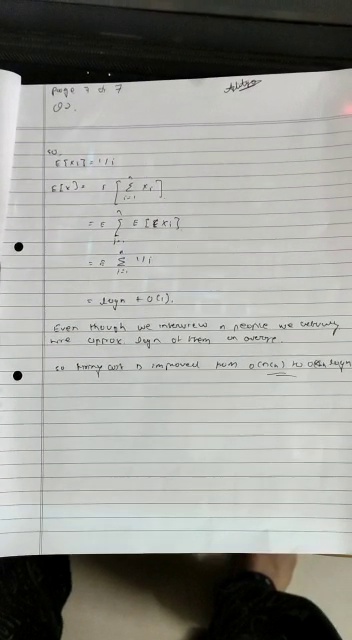 Page 7 of 7
Q2.
so,
E[xi] = 1/i
E[x] = E [ n Σ i=1 xi ]
= n Σ i=1 E [ xi ]
= n Σ i=1 1/i
= logn + O(1).
Even though we interview n people we actually
hire approx logn of them on average.
so hiring cost is improved from O(nCh) to logn